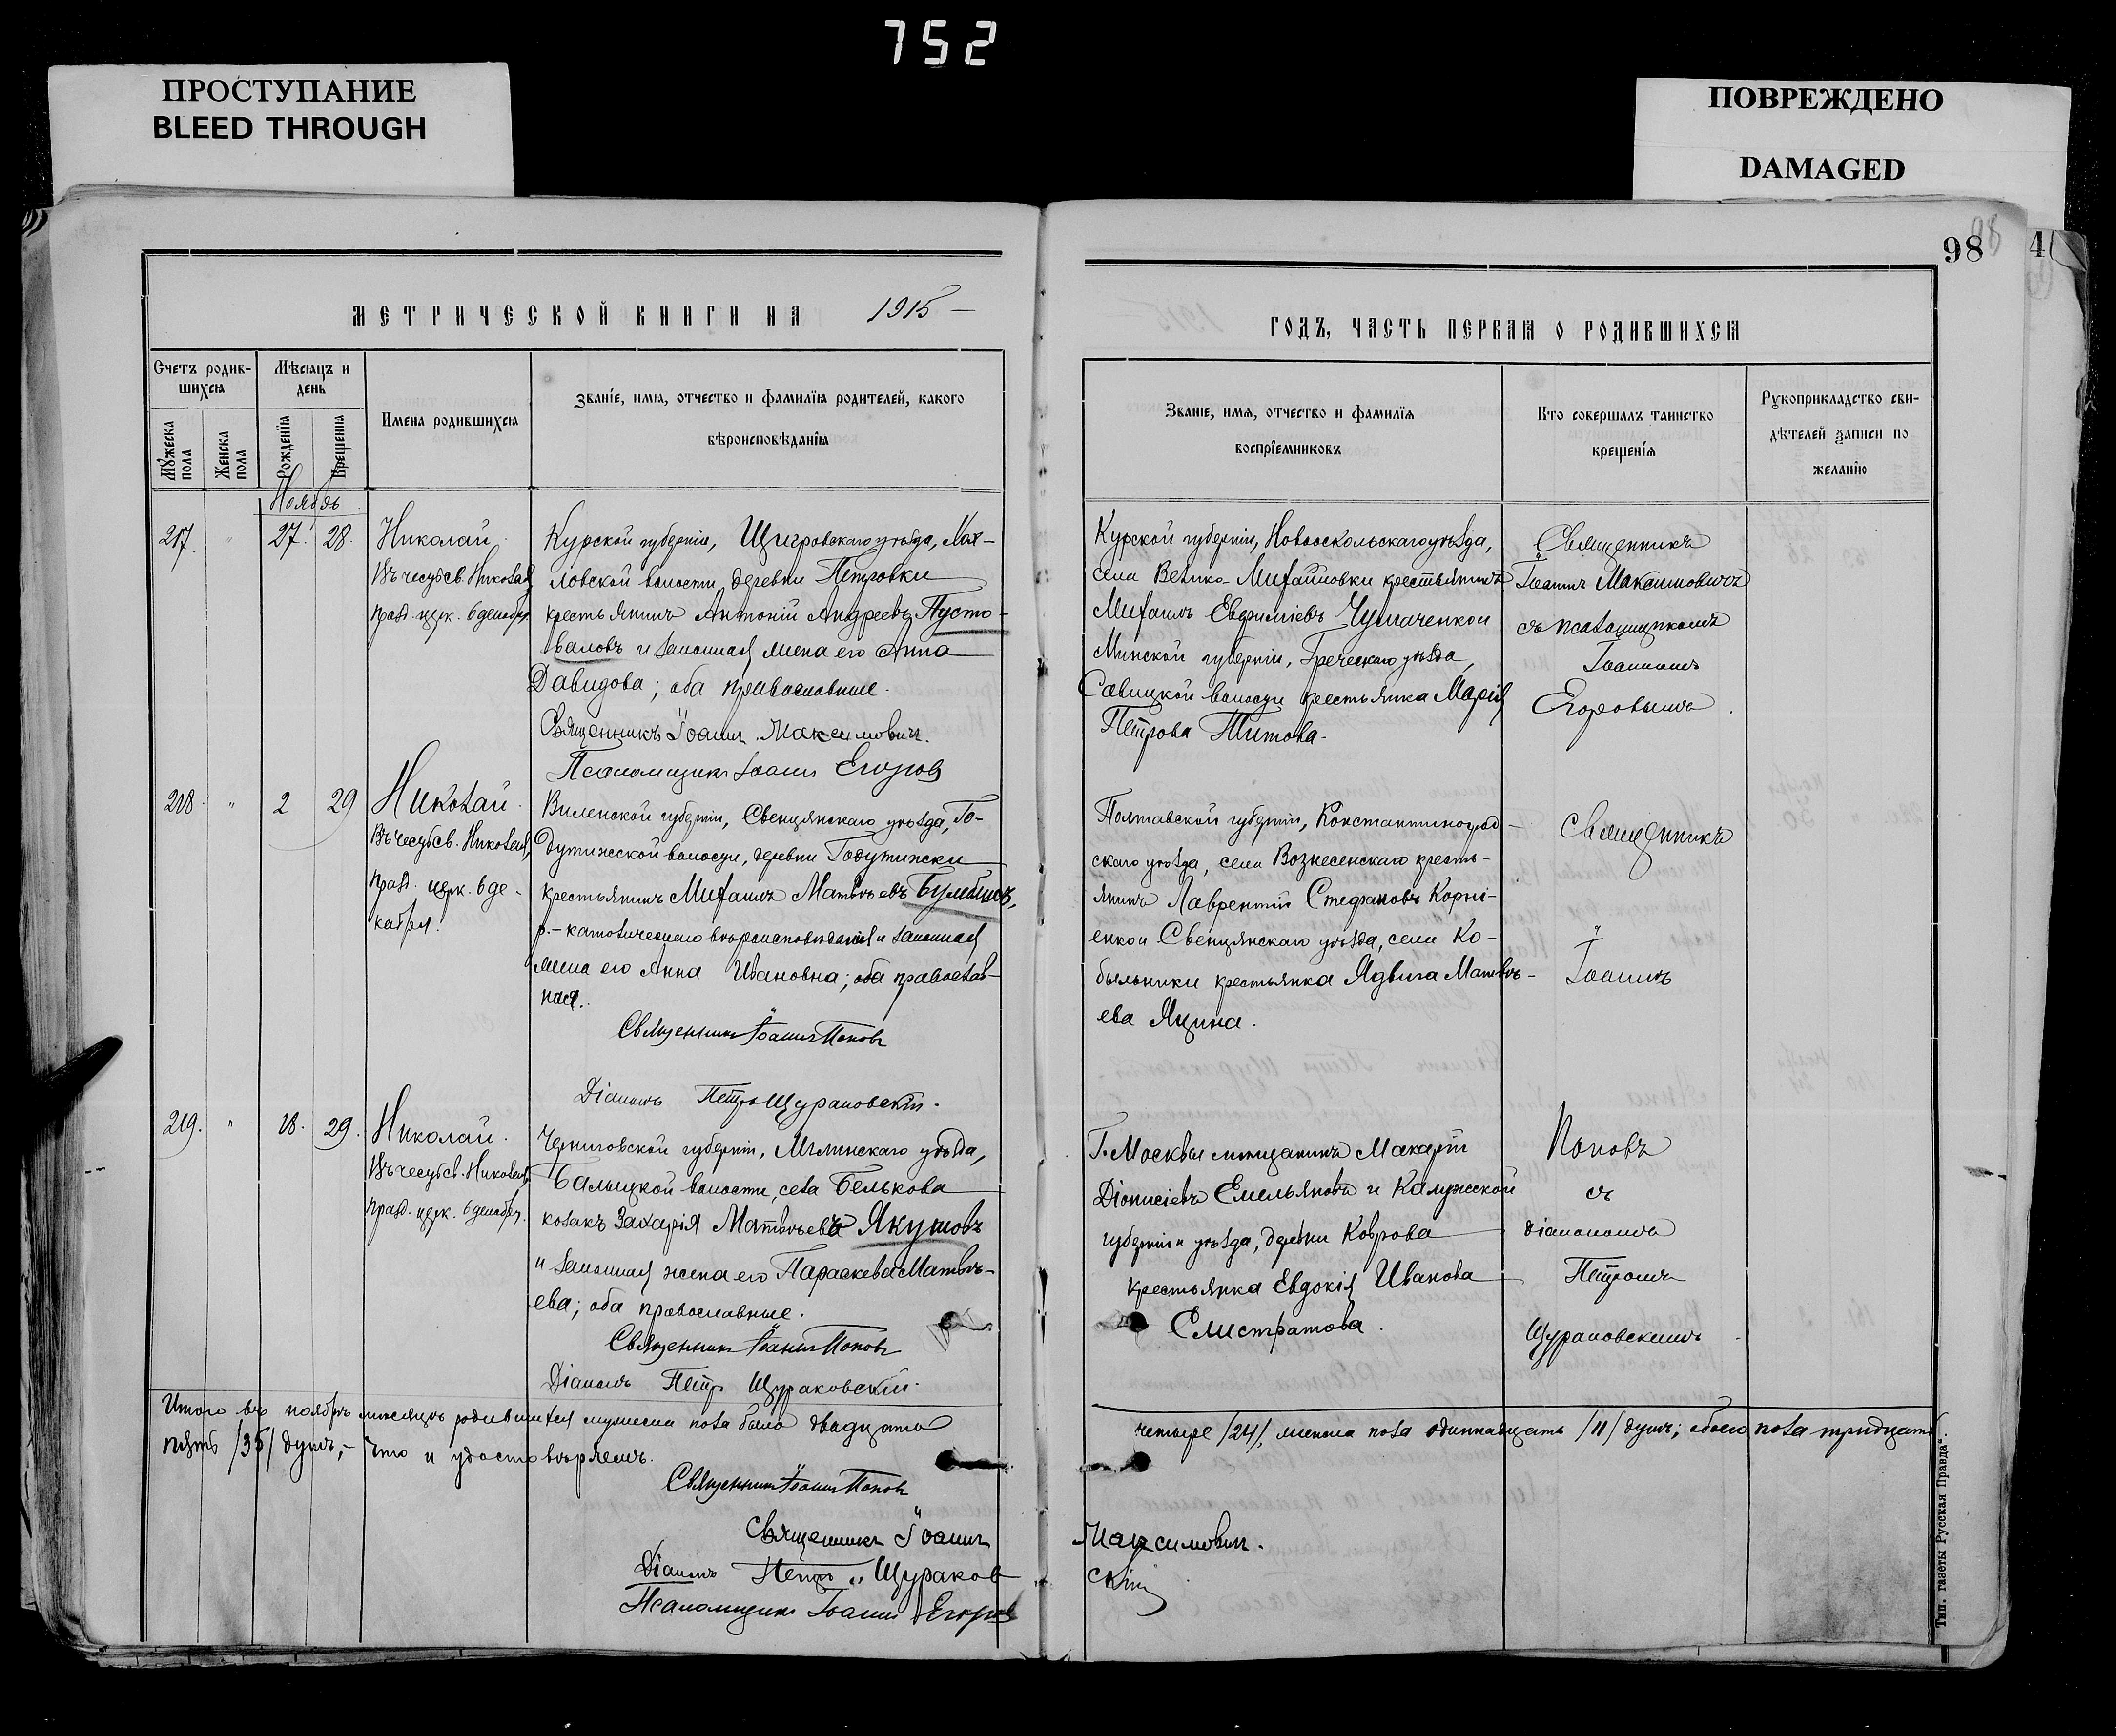 752
ПРОСТУПАНИЕ
BLEED THROUGH
ПОВРЕЖДЕНО
DAMAGED
98
4
МЕТРИЧЕСКОЙ КНИГИ НА 1915 —
Счетъ родив-
шихся
Мѣсяцъ и
день
Мужеска
пола
Женска
пола
Рожденія
Крещенія
Имена родившихся
Званіе, имя, отчество и фамилія родителей, какого
вѣроисповѣданія
Ноябрь
217. " 27. 28.
Николай.
Въ честь св. Николая,
празд. церк. 6 декабря.
Курской губерніи, Щигровскаго уѣзда, Мах-
ловской волости, деревни Петровки
крестьянинъ Антоній Андреевъ Пусто-
валовъ и законная жена его Анна
Давидова; оба православные.
Священникъ Іоаннъ Максимовичъ.
Псаломщикъ Іоаннъ Егоровъ
218. " 2 29
Николай.
Въ честь св. Николая,
празд. церк. 6 де-
кабря.
Виленской губерніи, Свенцянскаго уѣзда, Го-
дутишской волости, деревни Годутишки
крестьянинъ Михаилъ Матвѣевъ
р.-католическаго вѣроисповѣданія и законная
жена его Анна Ивановна; оба православ-
ная.
Священникъ Іоаннъ Поповъ
Діаконъ Петръ Щураковскій.
219. " 18. 29.
Николай.
Въ честь св. Николая,
празд. церк. 6 декабря.
Черниговской губерніи, Мглинскаго уѣзда,
волости, села Белькова
козакъ Захарія Матвѣевъ Якушовъ
и законная жена его Параскева Матвѣ-
ева; оба православные.
Священникъ Іоаннъ Поповъ
Діаконъ Петръ Щураковскій.
Итого въ ноябрѣ мѣсяцѣ родившихся мужеска пола было двадцать
пять /35/ душъ, – что и удостовѣряемъ.
Священникъ Іоаннъ Поповъ
Священникъ Іоаннъ
Діаконъ Петръ Щураков
Псаломщикъ Іоаннъ Егоровъ
ГОДЪ, ЧАСТЬ ПЕРВАЯ О РОДИВШИХСЯ
Званіе, имя, отчество и фамилія
воспріемниковъ
Кто совершалъ таинство
крещенія
Рукоприкладство сви-
дѣтелей записи по
желанію
Курской губерніи, Новооскольскаго уѣзда,
села Велико-Михайловки крестьянинъ
Михаилъ Евфиміевъ Чумаченко и
Минской губерніи, уѣзда,
Савицкой волости крестьянка Марія
Петрова Титова.
Священникъ
Іоаннъ Максимовичъ
съ псаломщикомъ
Іоанномъ
Егоровымъ.
Полтавской губерніи, Константиноград-
скаго уѣзда, села Вознесенскаго кресть-
янинъ Лаврентій Стефановъ Корні-
енко и Свенцянскаго уѣзда, села Ко-
быльники крестьянка Ядвига Матвѣ-
ева Яцина.
Священникъ
Іоаннъ
Г. Москвы мѣщанинъ Макарій
Діонисіевъ Емельяновъ и Калужской
губерніи и уѣзда, деревни Коврова
крестьянка Евдокія Иванова
Елистратова.
Поповъ
съ
діакономъ
Петромъ
Щураковскимъ.
четыре /24/, женска пола одиннадцать /11/ душъ; обоего пола тридцать
Максимовичъ.
скій
Тип. газеты „Русская Правда“.